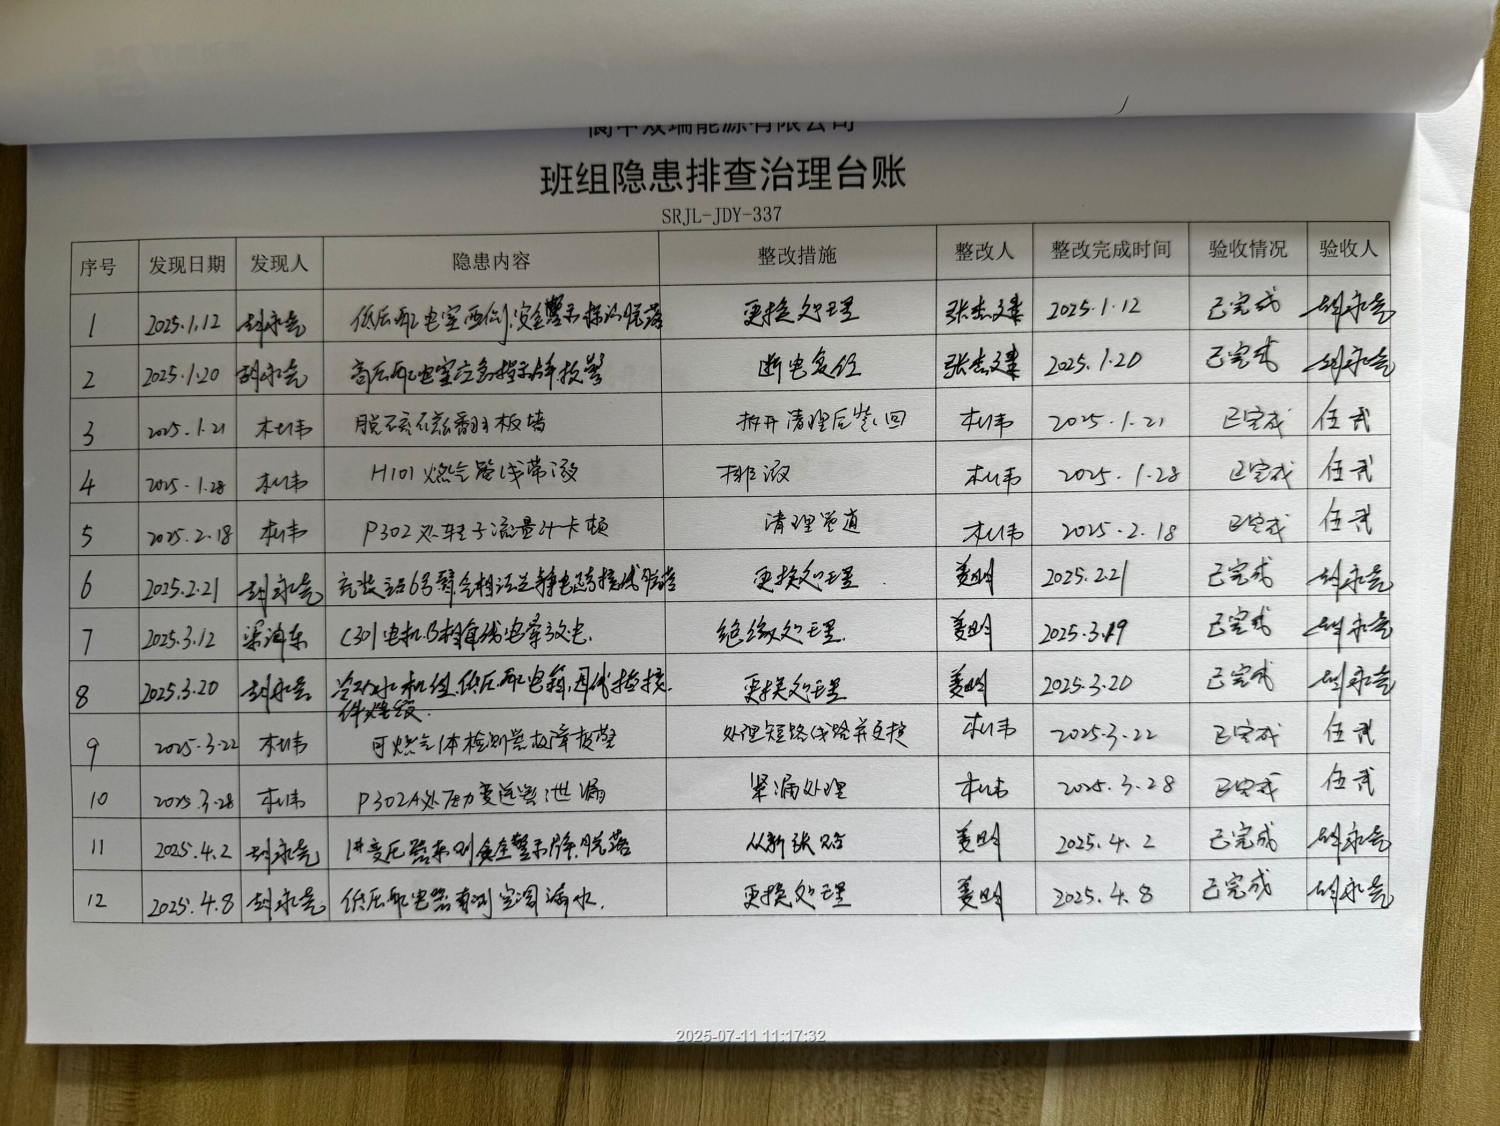 阆中双瑞能源有限公司
班组隐患排查治理台账
SRJL-JDY-337
序号 发现日期 发现人 隐患内容 整改措施 整改人 整改完成时间 验收情况 验收人
1 2025.1.12 胡永亮 低压配电室西侧安全警示标识脱落 更换处理 张杰建 2025.1.12 已完成 胡永亮
2 2025.1.20 胡永亮 高压配电室应急指示牌报警 断电复位 张杰建 2025.1.20 已完成 胡永亮
3 2025.1.21 杜伟 脱硫磁翻板堵 拆开清理后装回 杜伟 2025.1.21 已完成 任武
4 2025.1.28 杜伟 H101燃气管线带液 排液 杜伟 2025.1.28 已完成 任武
5 2025.2.18 杜伟 P302处转子流量计卡顿 清理管道 杜伟 2025.2.18 已完成 任武
6 2025.2.21 胡永亮 充装站6号臂气相法兰静电跨接线脱落 更换处理. 姜明 2025.2.21 已完成 胡永亮
7 2025.3.12 梁海东 C301电机B相直线电晕放电. 绝缘处理. 姜明 2025.3.19 已完成 胡永亮
8 2025.3.20 胡永亮 冷水机组低压配电箱,因线接接 更换处理 姜明 2025.3.20 已完成 胡永亮
件烧毁.
9 2025.3.22 杜伟 可燃气体检测器故障报警 处理短路线路并更换 杜伟 2025.3.22 已完成 任武
10 2025.3.28 杜伟 P302A处压力变送器泄漏 紧漏处理 杜伟 2025.3.28 已完成 任武
11 2025.4.2 胡永亮 1#变压器东侧安全警示牌脱落 从新张贴 姜明 2025.4.2 已完成 胡永亮
12 2025.4.8 胡永亮 低压配电器南侧空调漏水. 更换处理 姜明 2025.4.8 已完成 胡永亮
2025-07-11 11:17:32